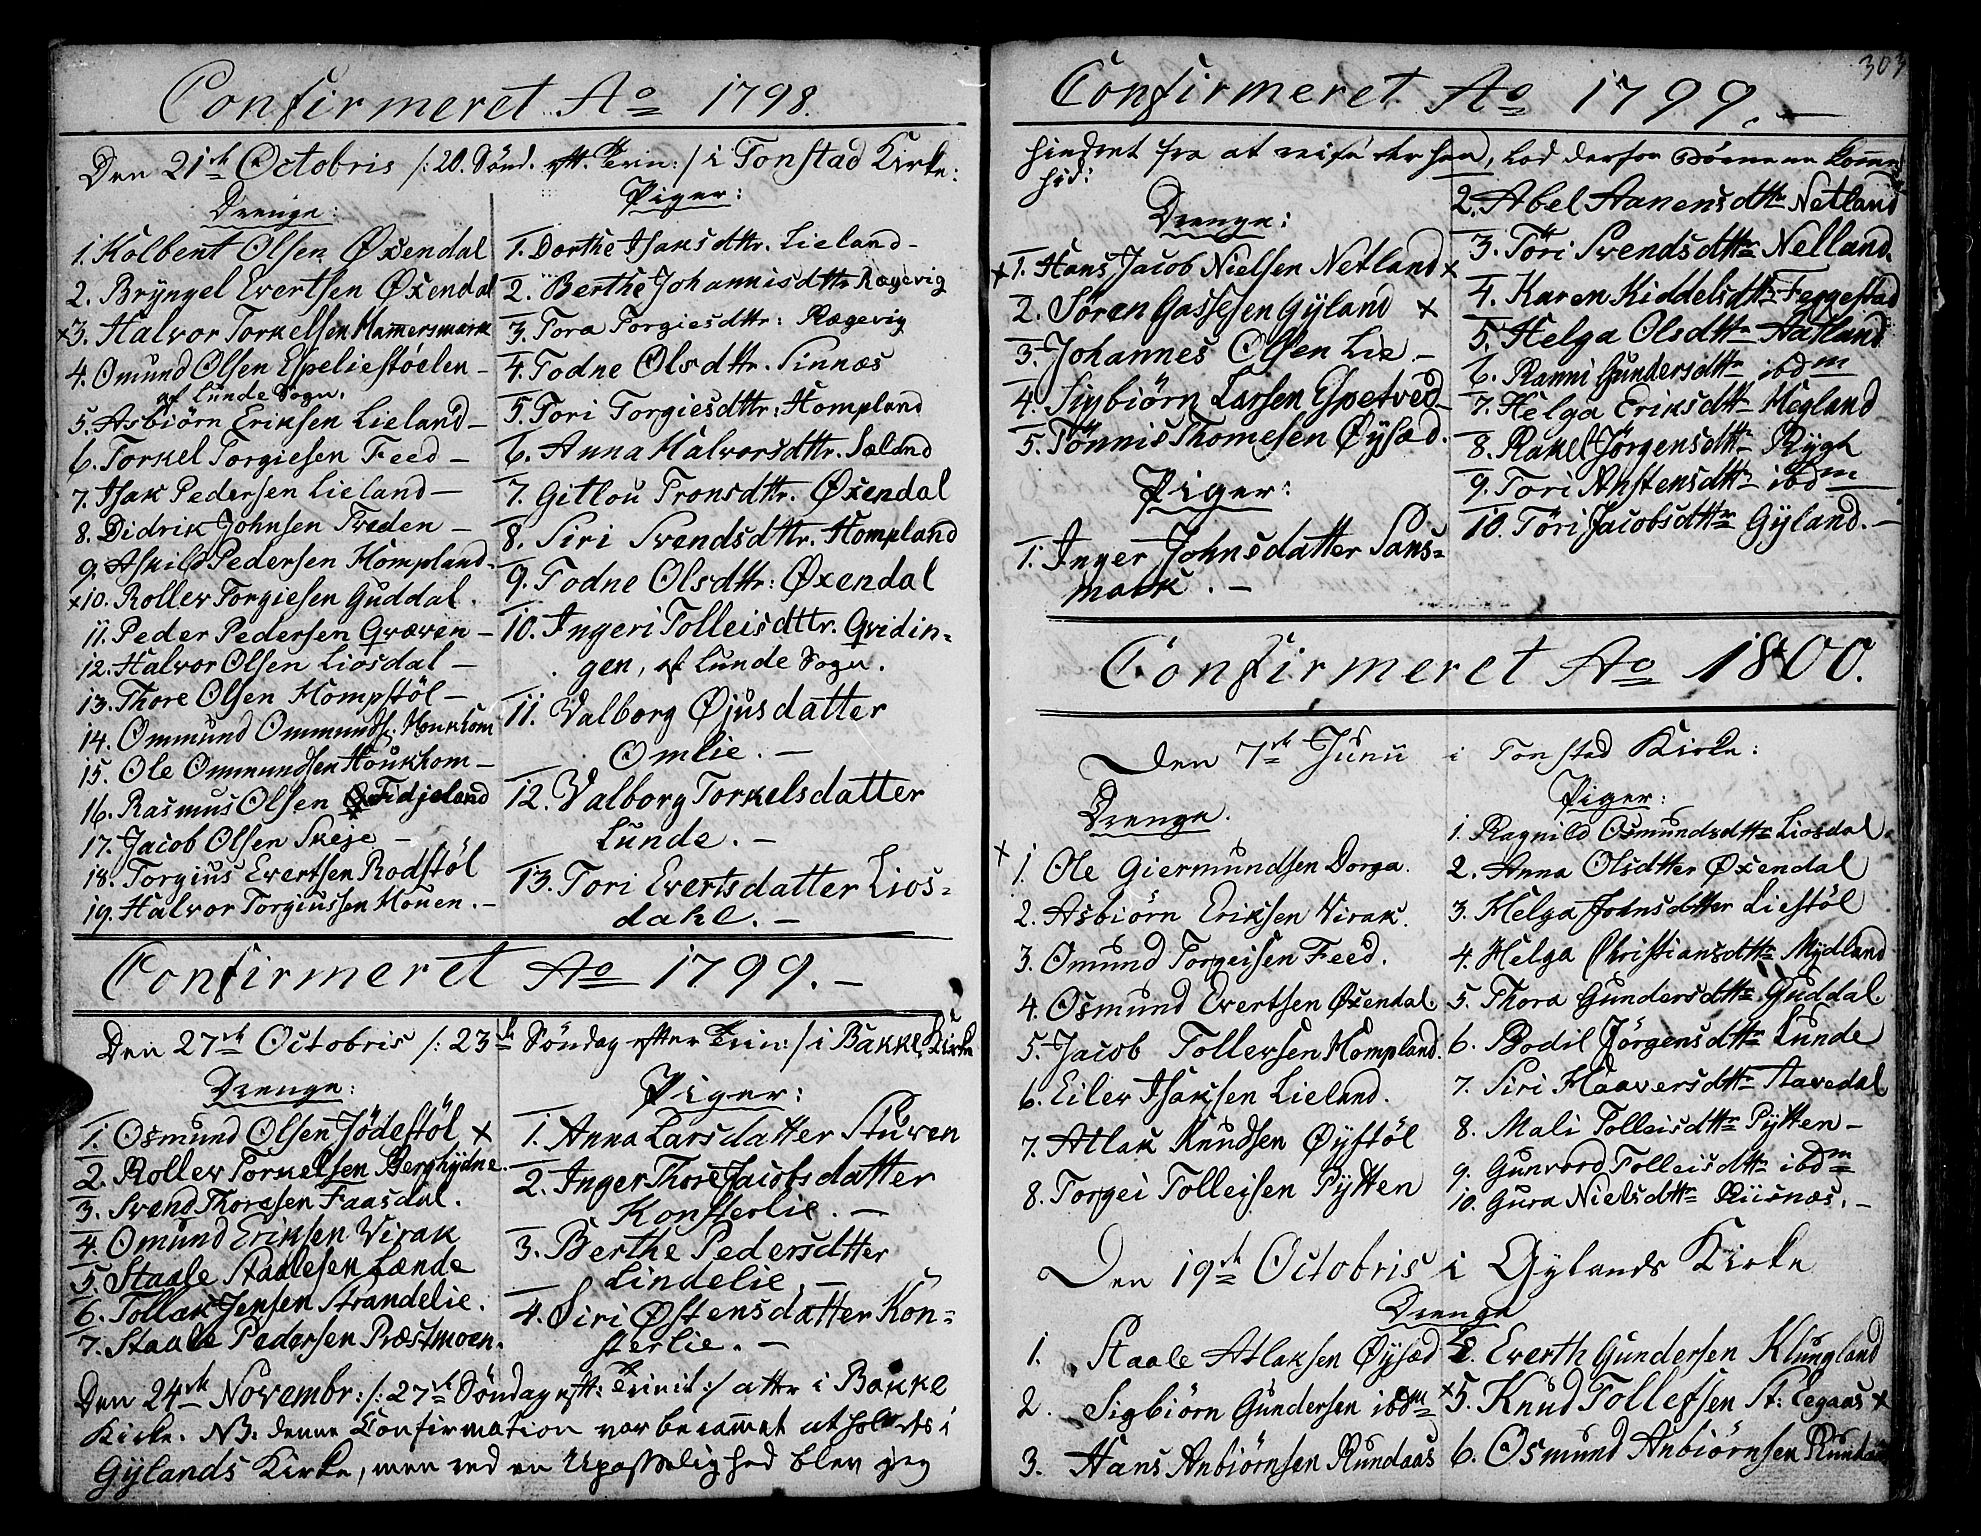 Confirmeret Ao 1798.
Den 21de Octobris /: 20. Sønd. eft. Trin: / i Tonstad Kirke:
Drenge:
1. Kolbent Olsen Øxendal
2. Bryngel Evertsen Øxendal
x3. Halvor Torkelsen Hamersmark
4. Omund Olsen Espeliestøelen –
af Lunde Sogn.
5. Asbiørn Eriksen Lieland –
6. Torkel Torgiesen Feed –
7. Isak Pedersen Lieland –
8. Didrik Johnsen Træden –
9. Askild Pedersen Hompland –
x10. Rollev Torgiesen Guddal.
11. Peder Pedersen Qvæven –
12. Halvor Olsen Liosdal –
13. Thore Olsen Hompstöl –
14. Ommund Ommunds. Houkhom
15. Ole Ommundsen Houkhom –
16. Rasmus Olsen Fidjeland
17. Jacob Olsen Skeje –
18. Torgius Evertsen Rodstöl
19. Halvor Torgiussen Houen. –
Piger:
1. Dorthe Isaksdttr. Lieland –
2. Berthe Johannisdttr Rægevig
3. Tora Torgiesdttr: Rægevig
4. Todne Olsdttr. Sinnæs
5. Tori Torgiesdttr: Hompland
6. Anna Halvorsdttr. Sæland
7. Gitlou Tronsdttr. Øxendal
8. Siri Svendsdttr. Hompland
9. Todne Olsdttr: Øxendal
10. Ingeri Tolleisdttr. Qvidin=
gen, af Lunde Sogn.
11. Valborg Øjusdatter
Omlie. –
12. Valborg Torkelsdatter
Lunde. –
13. Tori Evertsdatter Lios=
dahl. –
Confirmeret Ao 1799. –
Den 27de Octobris /: 23de Søndag efter Trin: / i Bakke Kirke
Drenge:
1. Osmund Olsen Jödestöl x
2. Rollev Torkelsen Berghydne.
3. Svend Thoresen Faasdal.
4. Omund Eriksen Virak
5. Staale Staalesen Lænde
6. Tollak Jensen Strandelie.
7. Staale Pedersen Præstmoen.
Piger:
1. Anna Larsdatter Stuven
2. Inger Thore Jacobsdatter
Konsterlie. –
3. Berthe Pedersdtter
Lindelie –
4. Siri Østensdatter Kon=
sterlie. –
Den 24de Novembr: /: 27de Søndag eft: Trinit: / atter i Bakke
Kirke. NB. denne Confirmation var berammet at holdes i
Gylands Kirke, men ved en Upasselighed blev jeg
303
Confirmeret Ao 1799. –
hindret fra at reise derhen, lod derfor Börnene komme
hid:
Drenge:
x 1. Hans Jacob Nielsen Netland x
2. Sören Gassesen Gyland x
3. Johannes Olsen Lie –
4. Sigbiörn Larsen Espetved
5. Tönnis Thomesen Øysæd.
Piger:
1. Inger Johnsdatter Sans=
mark. –
2. Abel Aanensdttr Netland
3. Töri Svendsdttr Netland.
4. Karen Kiddelsdttr Fegestad
5. Helga Olsdttr Aatland
6. Ranni Gundersdttr ibdm
7. Helga Eriksdttr Megland
8. Rakel Jörgensdttr Rygh
9. Tori Anstensdttr ibdm
10. Töri Jacobsdttr Gyland. –
Confirmeret Ao 1800.
Den 7de Junii i Tonstad Kirke:
Drenge.
x 1. Ole Giermundsen Dorga.
2. Asbiörn Eriksen Virak.
3. Omund Torgeisen Feed.
4. Osmund Evertsen Øxendal.
5. Jacob Tollevsen Hompland.
6. Eilev Isaksen Lieland.
7. Atlak Knudsen Øystöl
8. Torgei Tolleisen Pytten
Piger:
1. Ragnild Osmundsdttr Liosdal.
2. Anna Olsdtter Øxendal
3. Helga Johnsdatter Liestöl
4. Helga Christiansdttr Mydland
5. Thora Gundersdttr Guddal.
6. Bodil Jörgensdttr Lunde
7. Siri Haaversdttr Stavedal
8. Mali Tolleisdttr Pytten –
9. Gunvord Tolleisdttr ibdm
10. Gura Nielsdttr Riisnæs. –
Den 19de Octobris i Gylands Kirke
Drenge
1. Staale Atlaksen Øysæd
2. Sigbiörn Gundersen ibdm
3. Hans Anbiörnsen Rundaas
Everth Gundersen Klungland
x5. Knud Tollefsen St: Eegaas x
6. Osmund Anbiörnsen Rundaas